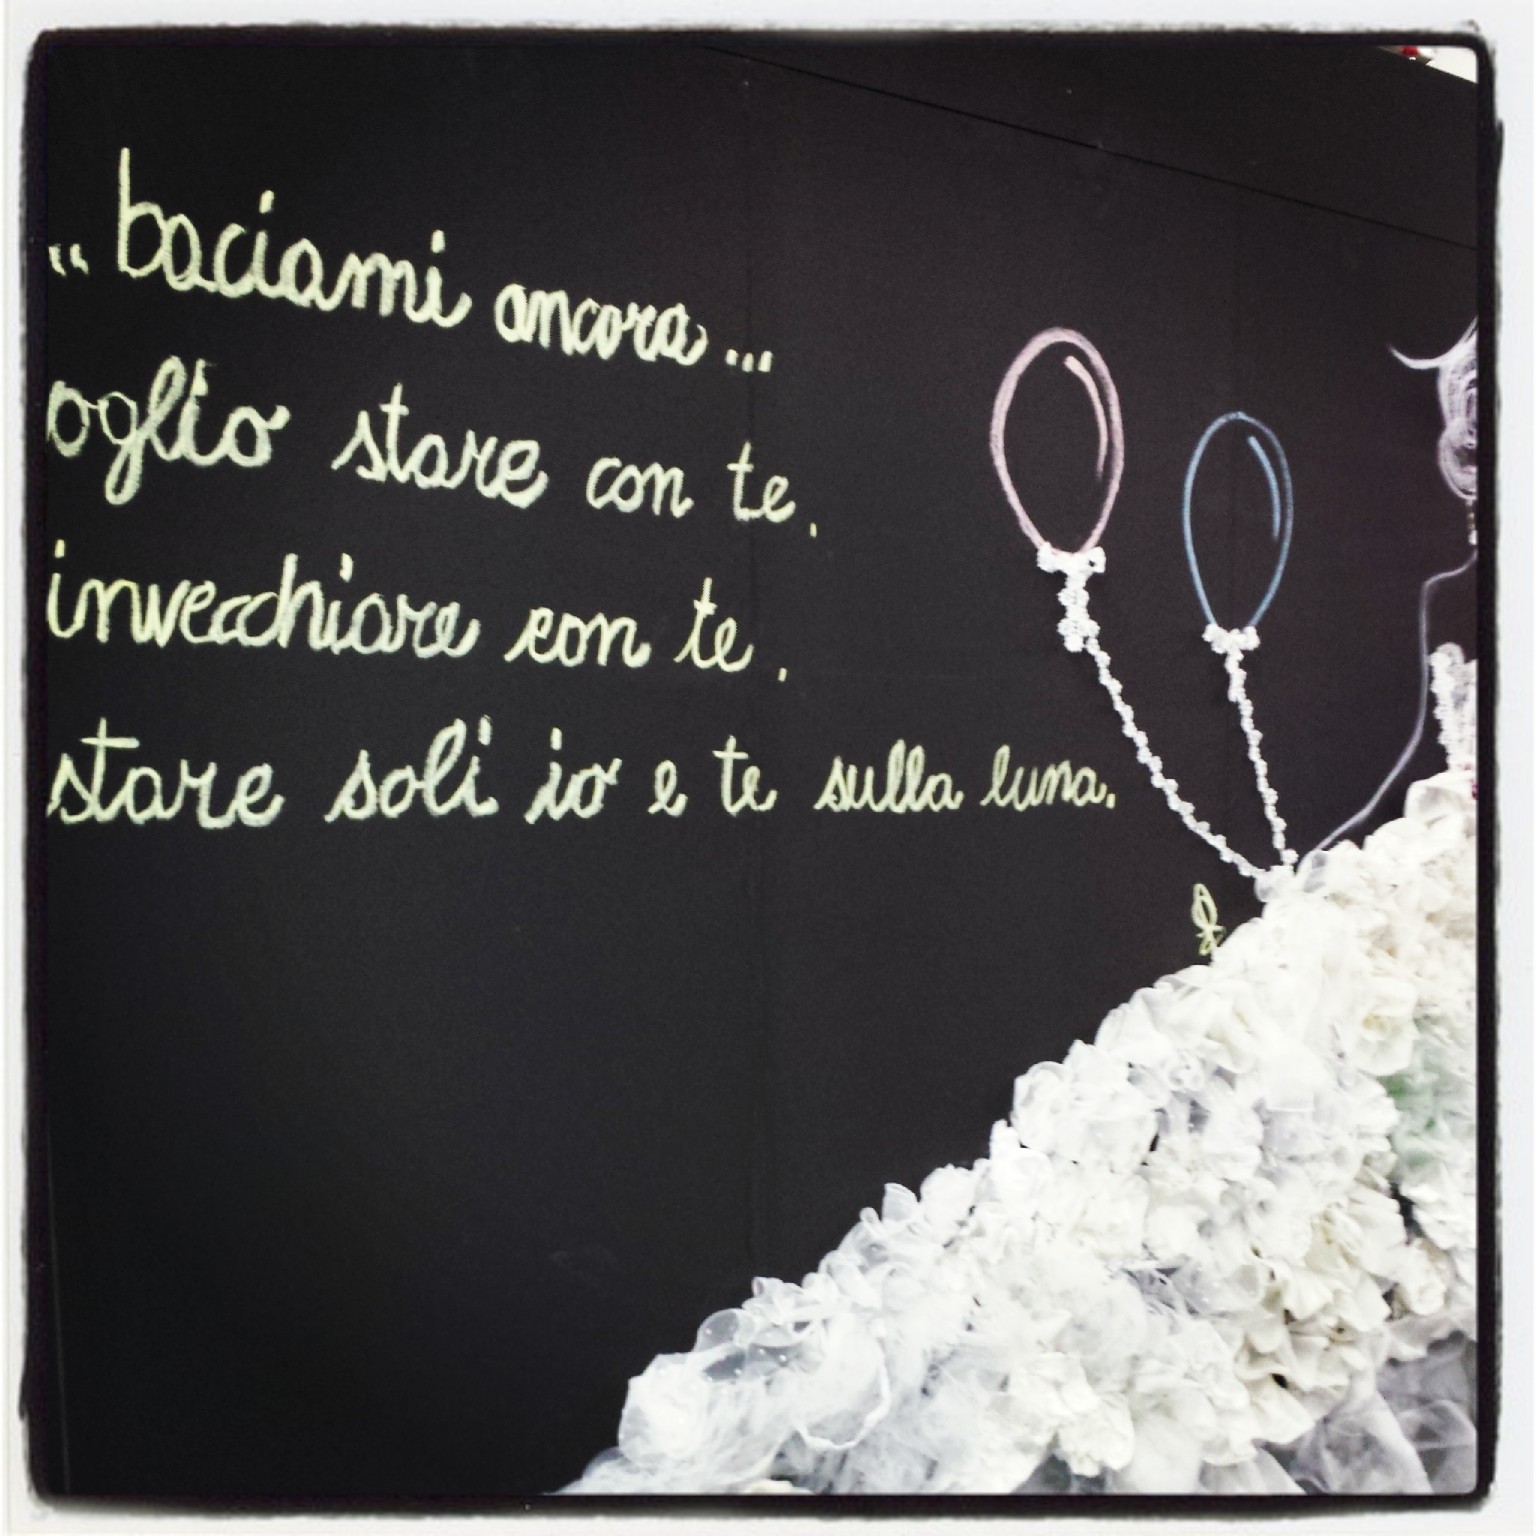 "baciami ancora...
oglio stare con te.
invecchiare con te.
stare soli io e te sulla luna.